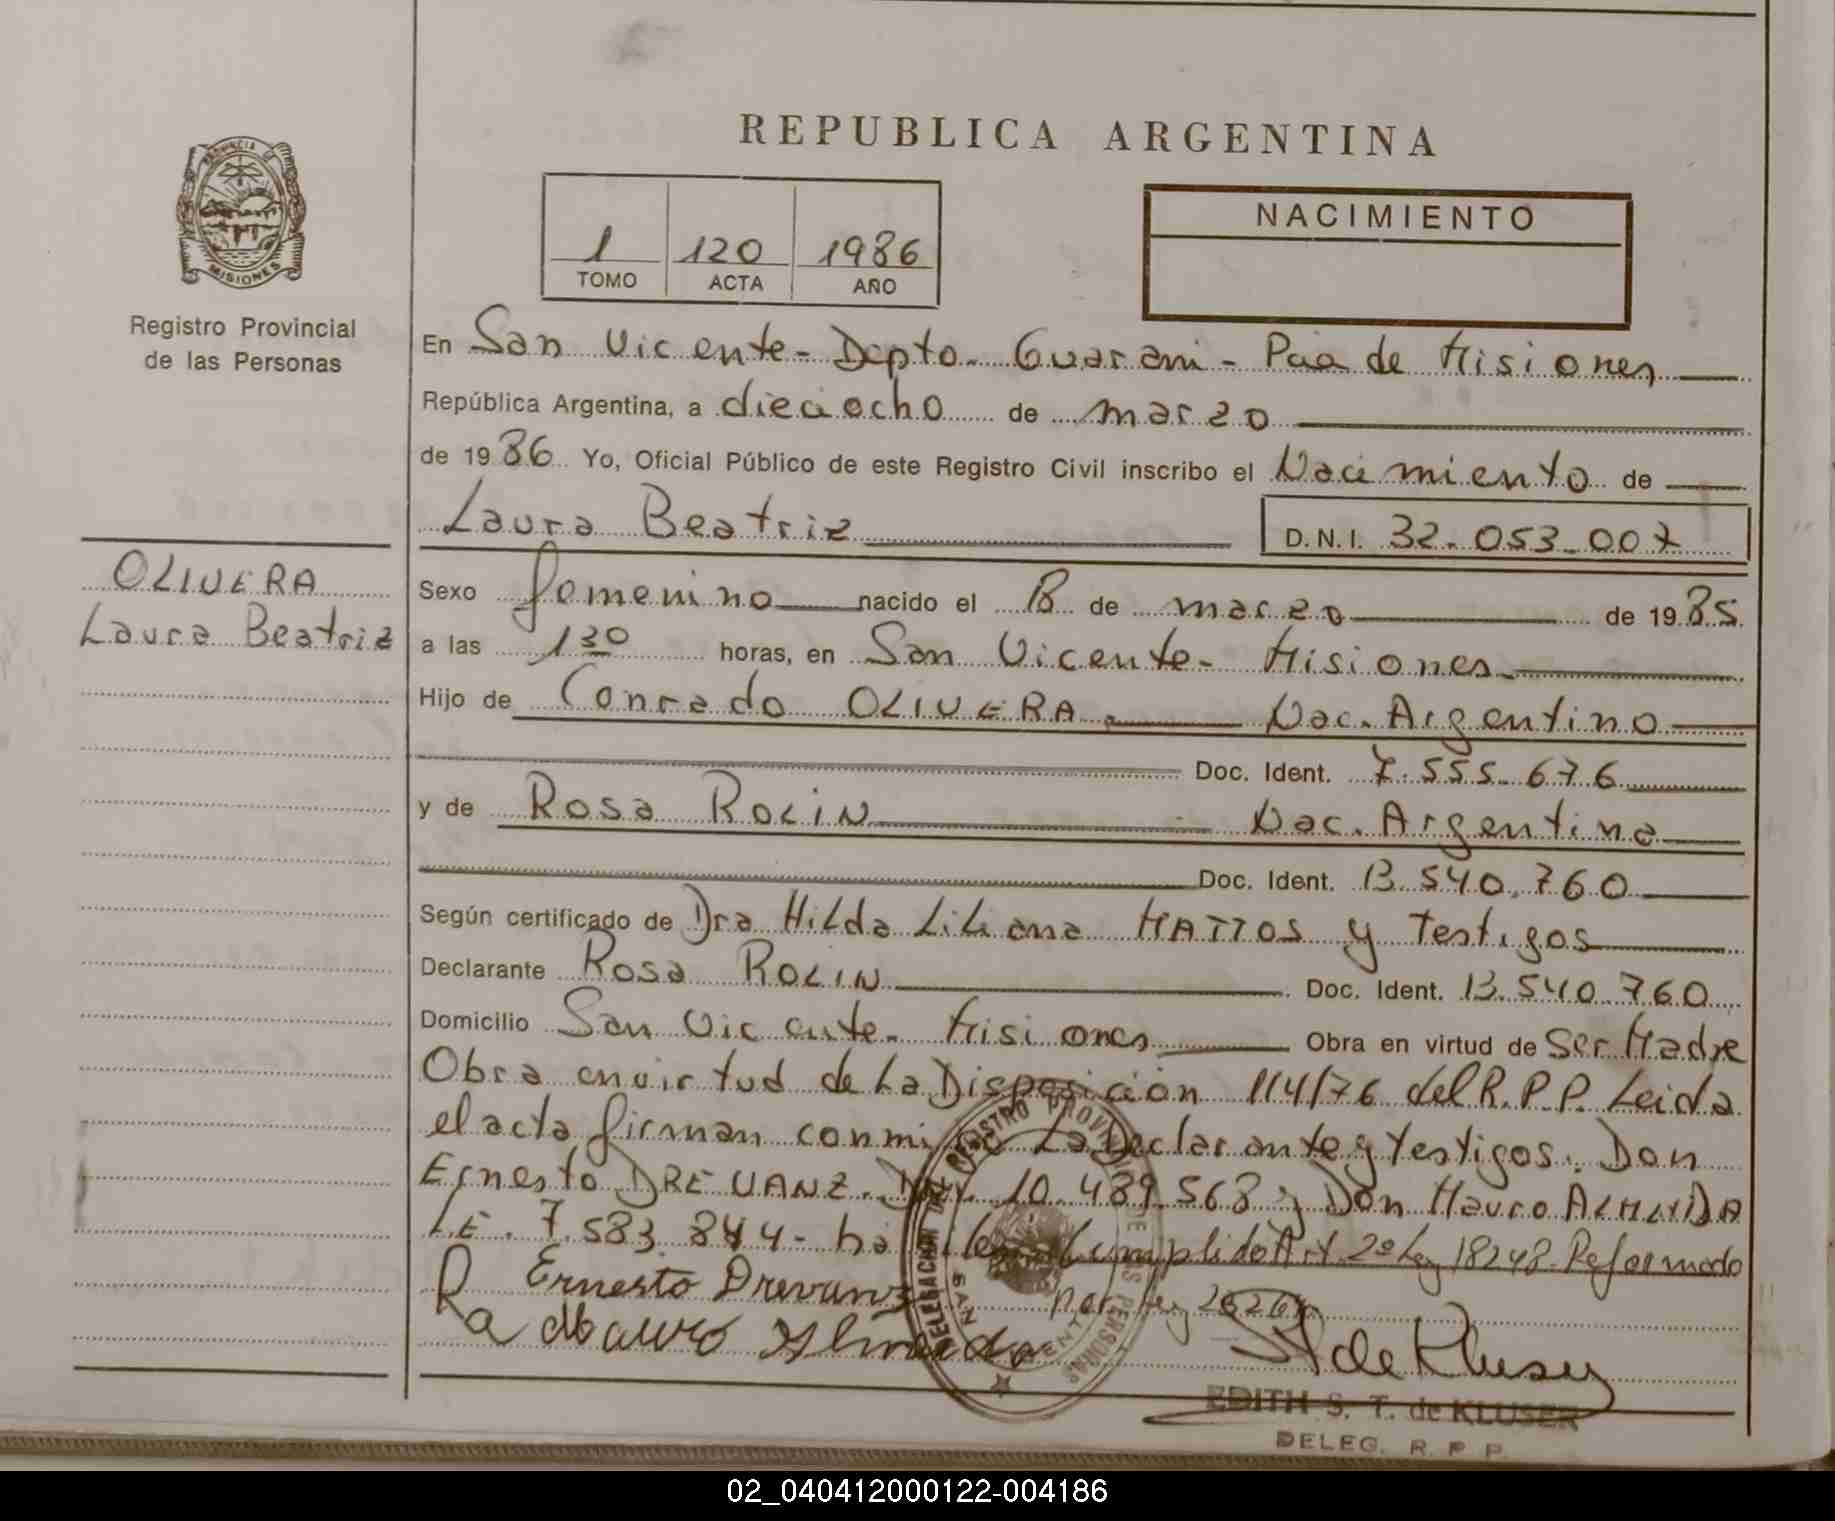 REPUBLICA ARGENTINA
PROVINCIA DE
MISIONES
Registro Provincial
de las Personas
1 120 1986
TOMO ACTA AÑO
NACIMIENTO
En San Vicente - Depto. Guarani - Pcia de Misiones
República Argentina, a dieciocho de marzo
de 1986 Yo, Oficial Público de este Registro Civil inscribo el Nacimiento de
Laura Beatriz
D.N.I. 32.053.007
OLIVERA
Laura Beatriz
Sexo femenino nacido el 18 de marzo de 1985
a las 1 30 horas, en San Vicente - Misiones
Hijo de Conrado OLIVERA Nac. Argentino
Doc. Ident. 7.555.676
y de Rosa ROLIN Nac. Argentina
Doc. Ident. 13.540.760
Según certificado de Dra Hilda Liliana MATTOS y Testigos
Declarante Rosa ROLIN Doc. Ident. 13.540.760
Domicilio San Vicente - Misiones Obra en virtud de Ser Madre
Obra en virtud de La Disposición 114/76 del R.P.P. Leida
el acta firman conmigo La Declarante y Testigos: Don
Ernesto DREVANZ. 10.489.568 y Don Mauro ALMEIDA
L.E. 7.583.844 - Cumplido Art. 2º Ley 18248 Reformado
por ley
Ernesto Drevanz
Mauro Almeida
DELEGACION DEL REGISTRO PROVINCIAL DE LAS PERSONAS
SAN VICENTE
EDITH S. T. de KLUSER
DELEG. R. P. P.
02_040412000122-004186